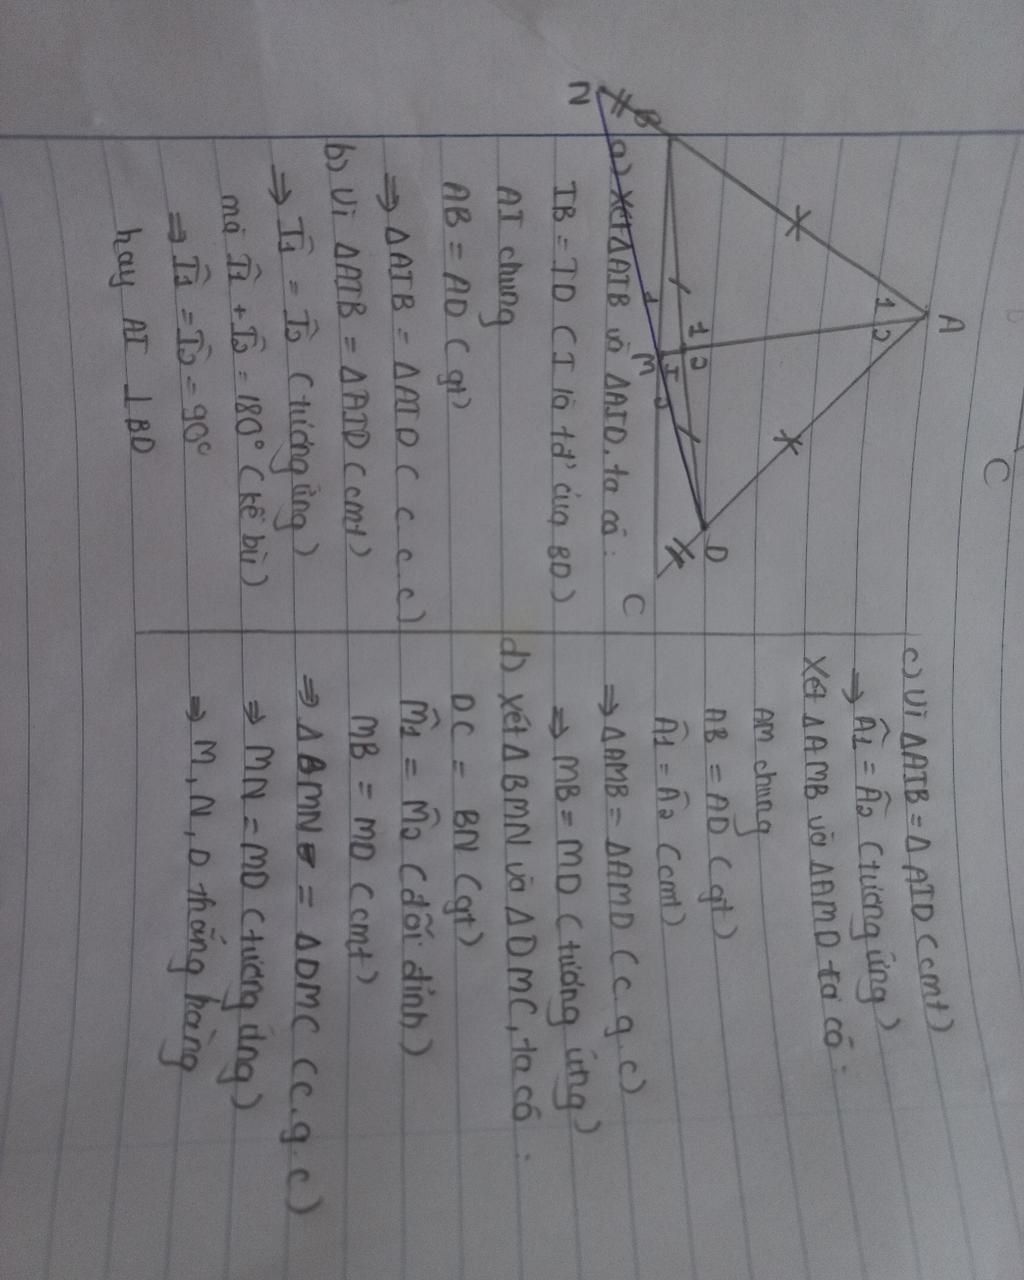 C
A
1 2
B
D
N
1 2
I
M
1 2
C
a) Xét ΔAIB và ΔAID, ta có:
IB = ID (I là tđ' của BD)
AI chung
AB = AD (gt)
⇒ ΔAIB = ΔAID (c.c.c)
b) Vì ΔAIB = ΔAID (cmt)
⇒ Î1 = Î2 (tương ứng)
mà Î1 + Î2 = 180° (kề bù)
⇒ Î1 = Î2 = 90°
hay AI ⊥ BD
c) Vì ΔAIB = ΔAID (cmt)
⇒ Â1 = Â2 (tương ứng)
Xét ΔAMB và ΔAMD ta có:
AM chung
AB = AD (gt)
Â1 = Â2 (cmt)
⇒ ΔAMB = ΔAMD (c.g.c)
⇒ MB = MD (tương ứng)
d) Xét ΔBMN và ΔDMC, ta có:
DC = BN (gt)
M̂1 = M̂2 (đối đỉnh)
MB = MD (cmt)
⇒ ΔBMN = ΔDMC (c.g.c)
⇒ MN = MD (tương ứng)
⇒ M, N, D thẳng hàng